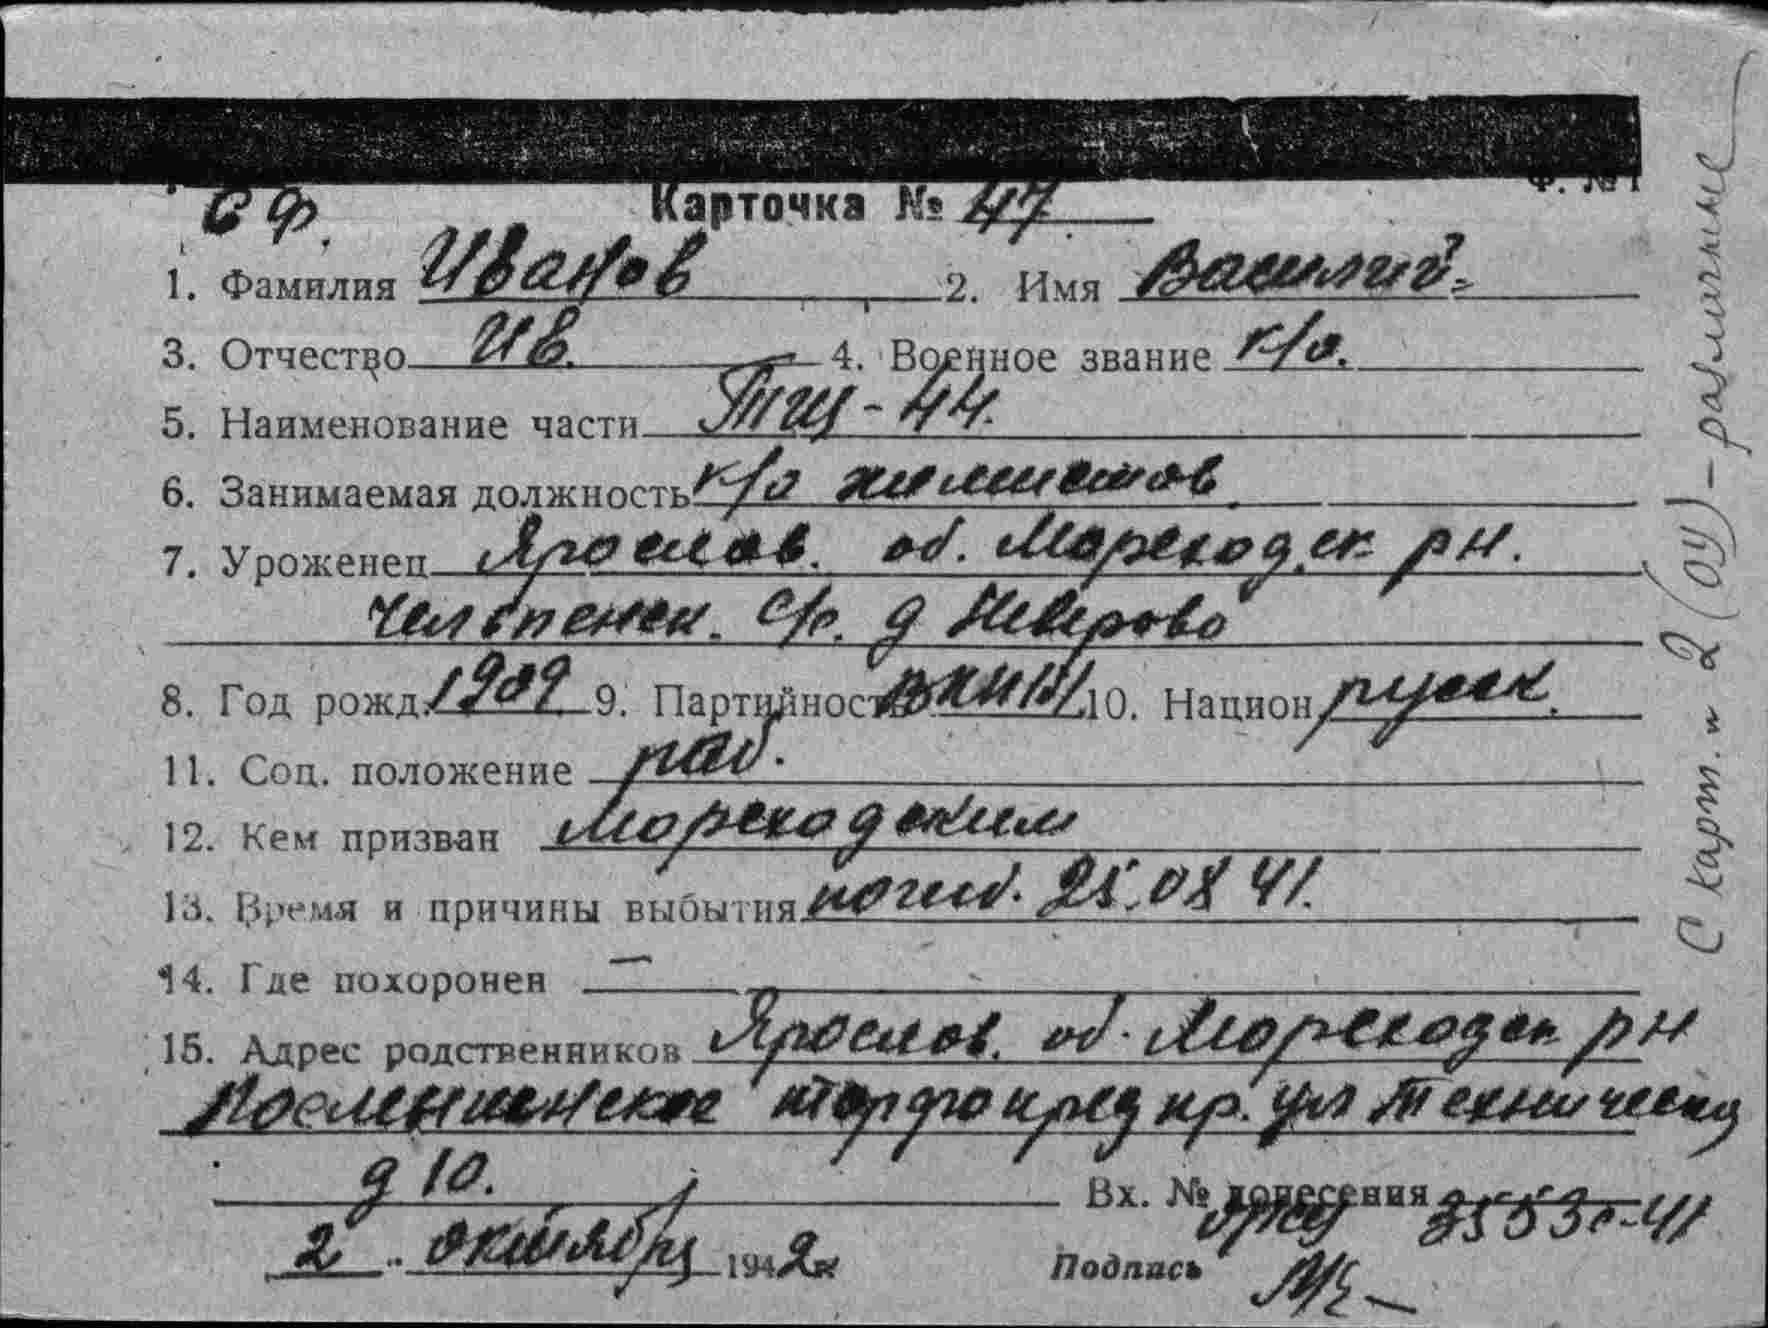 Ф. № 1
СФ. Карточка № 47
1. Фамилия Иванов 2. Имя Василий
3. Отчество Ив. 4. Военное звание к/о.
5. Наименование части ТЩ-44.
6. Занимаемая должность к/о
7. Уроженец Ярослав. об. Мореходск рн.
с/с. д Неверово
8. Год рожд. 1909 9. Партийность ВКП/б/ 10. Национ русск.
11. Соц. положение раб.
12. Кем призван Мореходским
13. Время и причины выбытия погиб. 25.08 41.
14. Где похоронен —
15. Адрес родственников Ярослав. об. Мореходск рн
торфопредпр. ул Техническая
д 10. Вх. № донесения
2 октября 1942 Подпись
С карт. № 2 (ОУ) - различные